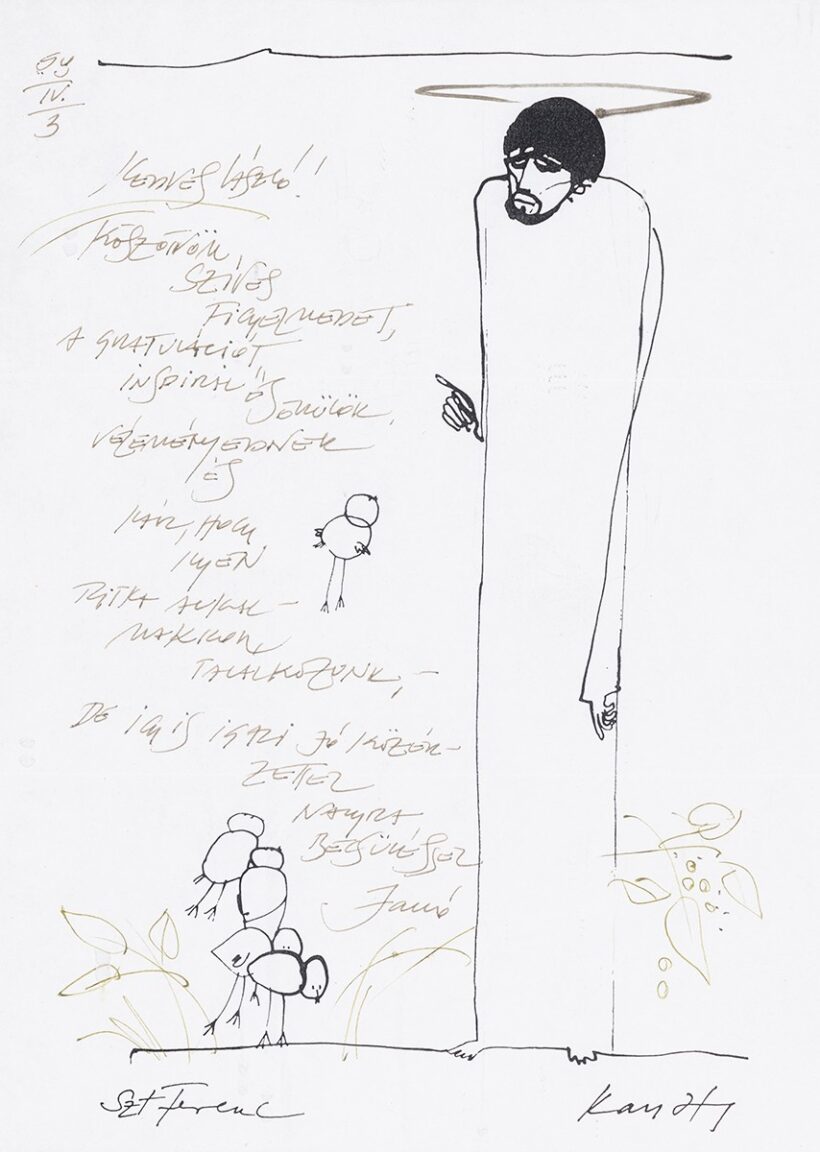 IV.
3
KEDVES LÁSZLÓ!
KÖSZÖNÖM,
SZÍVES
FIGYELMEDET,
A GRATULÁCIÓT
INSPIRÁL ÉS ÖRÜLÖK
VÉLEMÉNYEDNEK
ÉS
KÁR, HOGY
ILYEN
RITKA ALKAL-
MAKKOR,
TALÁLKOZUNK, -
DE ÍGY IS IGAZI JÓ KÖZÉR-
ZETTEL
NAGYRA
BECSÜLÉSSEL
Janó
Szt Ferenc